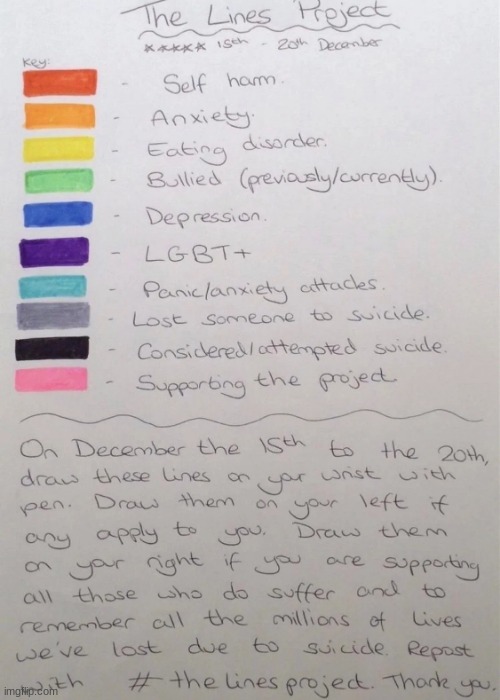 The Lines Project
***** 15th - 20th December
Key:
- Self harm.
- Anxiety.
- Eating disorder.
- Bullied (previously/currently).
- Depression.
- LGBT+
- Panic/anxiety attacks.
- Lost someone to suicide.
- Considered/attempted suicide.
- Supporting the project
On December the 15th to the 20th,
draw these lines on your wrist with
pen. Draw them on your left if
any apply to you. Draw them
on your right if you are supporting
all those who do suffer and to
remember all the millions of lives
we've lost due to suicide. Repost
with # the lines project. Thank you
imgflip.com